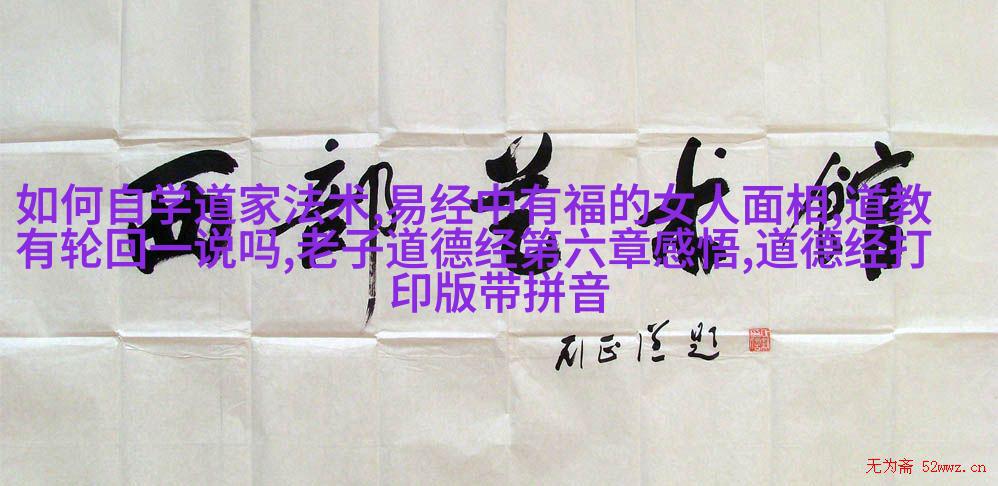 如何自学道家法术,易经中有福的女人面相,道教
有轮回一说吗,老子道德经第六章感悟,道德经打
印版带拼音
西部艺术馆
石正溢题
无为斋 52wwz.cn